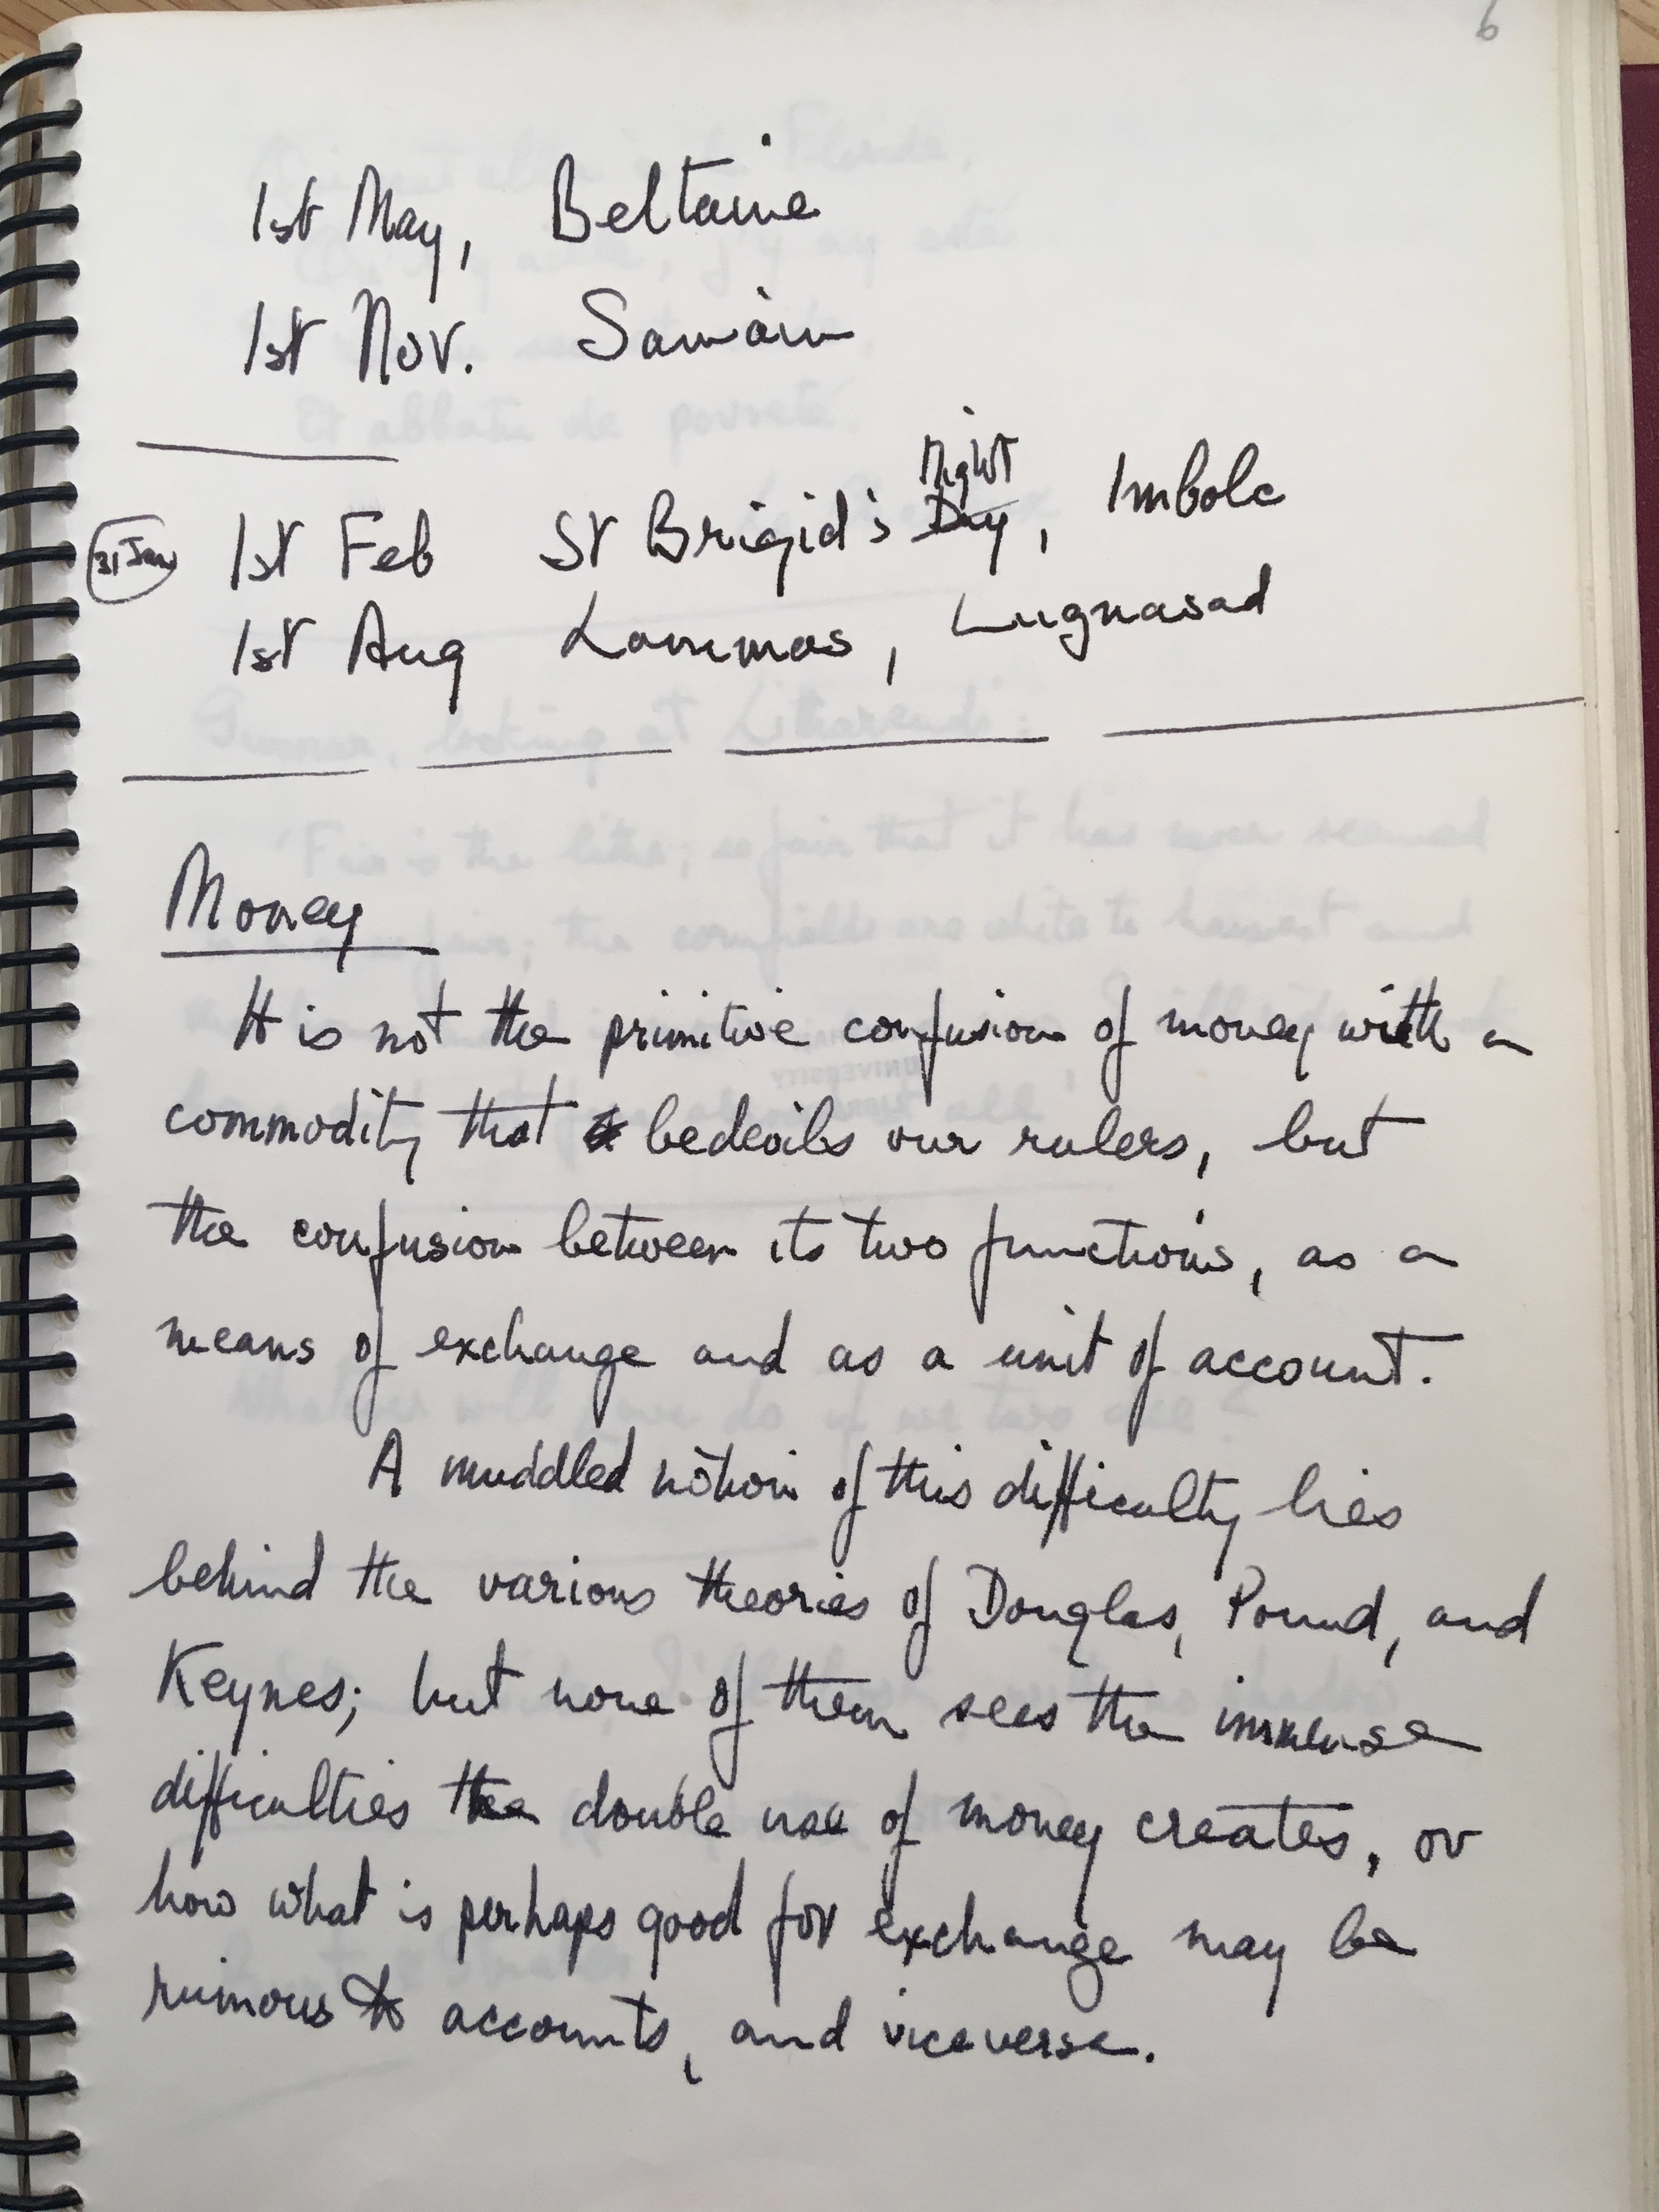 6
1st May, Beltaine
1st Nov. Samain
31 Jan 1st Feb St Brigid's Day Night, Imbolc
1st Aug Lammas, Lugnasad
Money
It is not the primitive confusion of money with a
commodity that bedevils our rulers, but
the confusion between its two functions, as a
means of exchange and as a unit of account.
A muddled notion of this difficulty lies
behind the various theories of Douglas, Pound, and
Keynes; but none of them sees the immense
difficulties the double use of money creates, or
how what is perhaps good for exchange may be
ruinous to accounts, and vice versa.